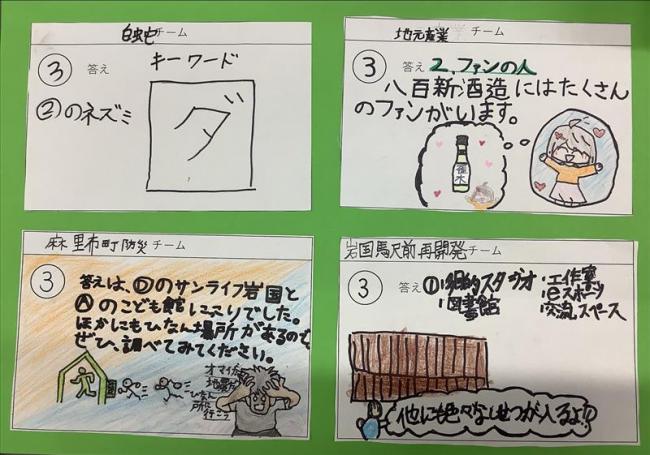 白蛇チーム
③ 答え キーワード
②のネズミ
ダ
地元産業チーム
③ 答え 2.ファンの人
八百新酒造にはたくさん
のファンがいます。
雁木
麻里布町防災チーム
③ 答えは、Ⓓのサンライフ岩国と
Ⓐのこども館でした。
ほかにもひなん場所があるので、
ぜひ、調べてみてください。
ひなん
行こう
岩国駅前再開発チーム
③ 答え ①多目的スタジオ ・工作室
・図書館 ・eスポーツ
・交流スペース
他にも色々なしせつが入るよ!!